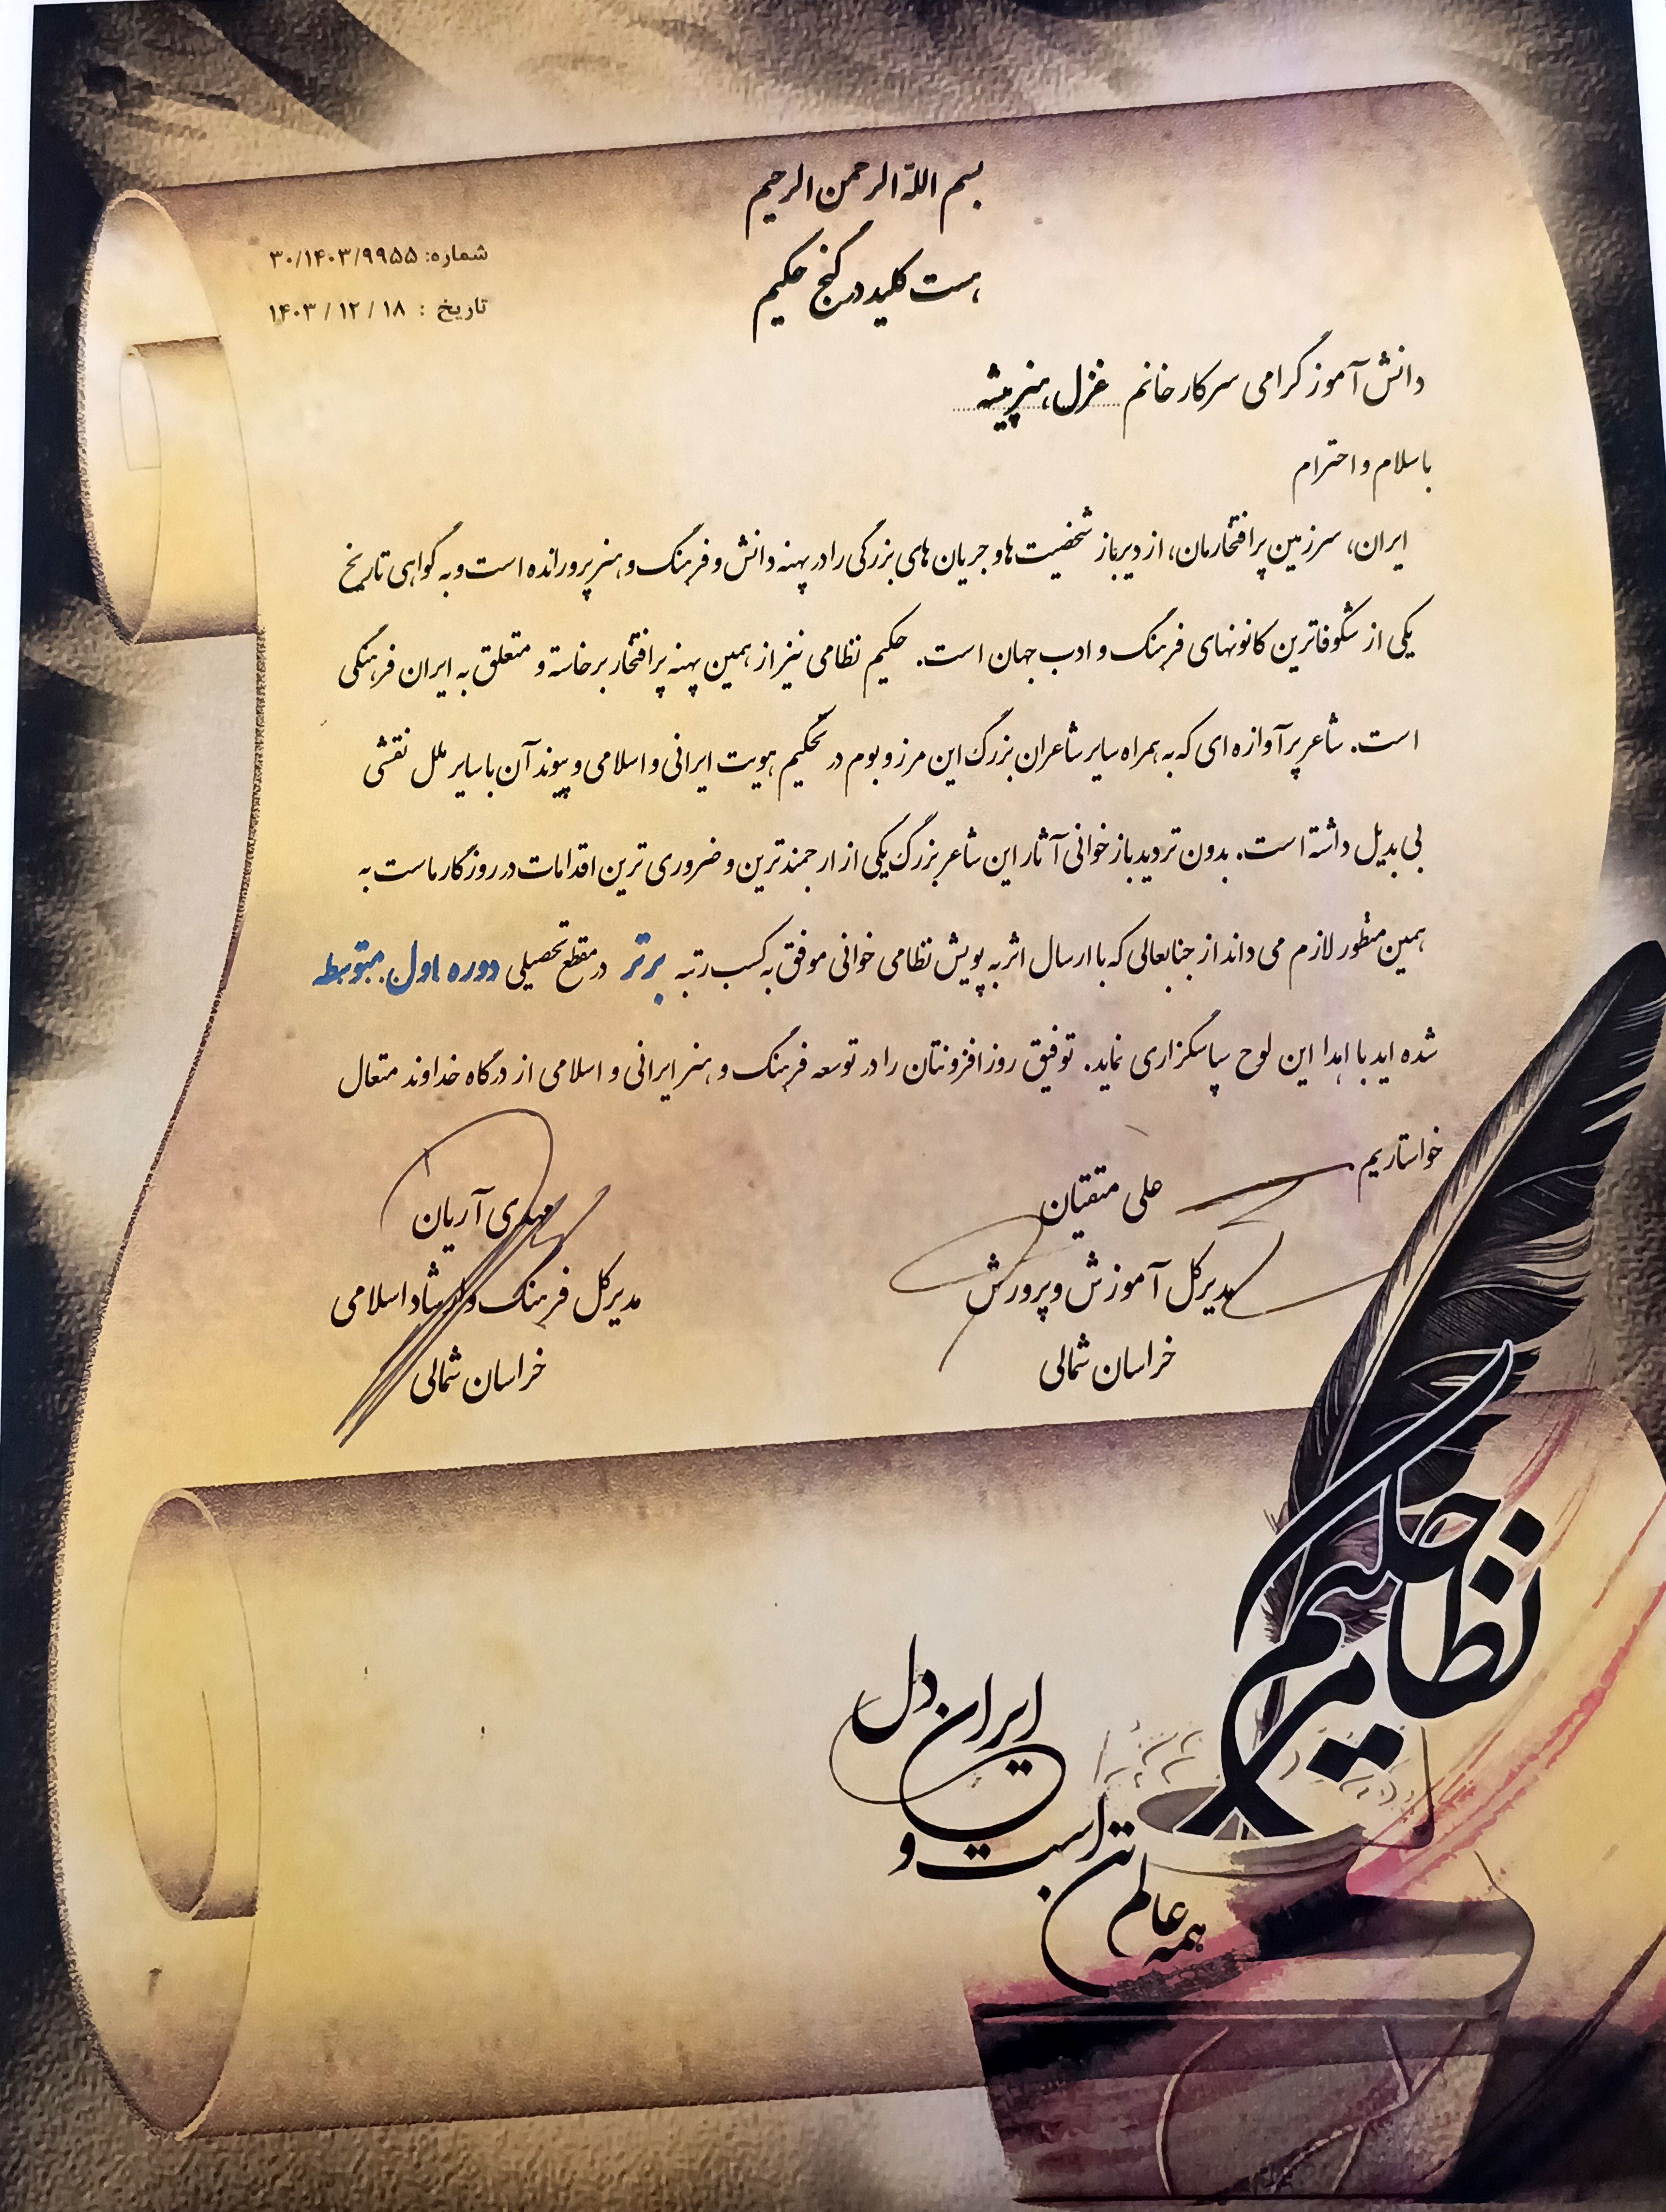 بسم الله الرحمن الرحیم
هست کلید در گنج حکیم
شماره: ۳۰/۱۴۰۳/۹۹۵۵
تاریخ : ۱۴۰۳/۱۲/۱۸
دانش آموز گرامی سرکار خانم غزل هنرپیشه
با سلام و احترام
ایران، سرزمین پرافتخارمان، از دیرباز شخصیت ها و جریان های بزرگی را در پهنه دانش و فرهنگ و هنر پرورانده است و به گواهی تاریخ
یکی از شکوفاترین کانونهای فرهنگ و ادب جهان است. حکیم نظامی نیز از همین پهنه پرافتخار برخاسته و متعلق به ایران فرهنگی
است. شاعر پرآوازه ای که به همراه سایر شاعران بزرگ این مرز و بوم در تحکیم هویت ایرانی و اسلامی و پیوند آن با سایر ملل نقشی
بی بدیل داشته است. بدون تردید بازخوانی آثار این شاعر بزرگ یکی از ارجمندترین و ضروری ترین اقدامات در روزگار ماست به
همین منظور لازم می داند از جنابعالی که با ارسال اثر به پویش نظامی خوانی موفق به کسب رتبه برتر در مقطع تحصیلی دوره اول متوسطه
شده اید با اهدا این لوح سپاسگزاری نماید. توفیق روزافزونتان را در توسعه فرهنگ و هنر ایرانی و اسلامی از درگاه خداوند متعال
خواستاریم.
علی متقیان
مدیرکل آموزش و پرورش
خراسان شمالی
مهدی آریان
مدیرکل فرهنگ و ارشاد اسلامی
خراسان شمالی
حکیم
نظامی
همه عالم تن است و
ایران دل